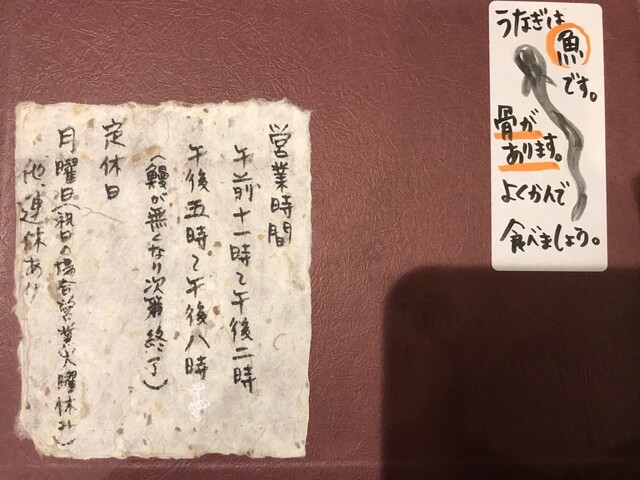 営業時間
午前十一時〜午後二時
午後五時〜午後八時
(鰻が無くなり次第終了)
定休日
月曜日(祝日の場合営業火曜休み)
他、連休あり
うなぎは
魚
です。
骨が
あります。
よくかんで
食べましょう。